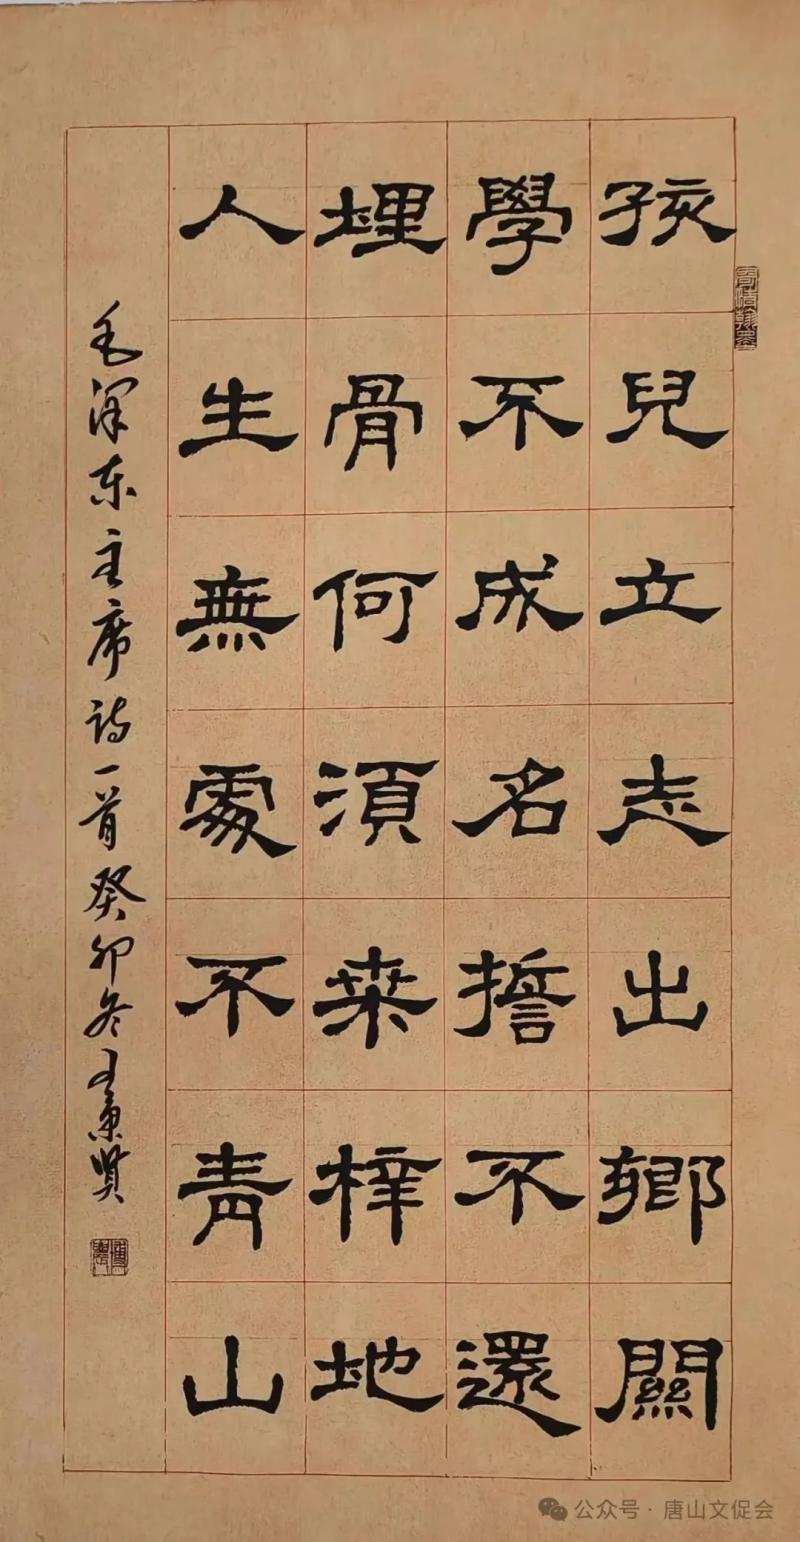 孩兒立志出鄉關
學不成名誓不還
埋骨何須桑梓地
人生無處不青山
毛泽东主席诗一首癸卯冬秉贤
寄情翰墨
公众号 · 唐山文促会